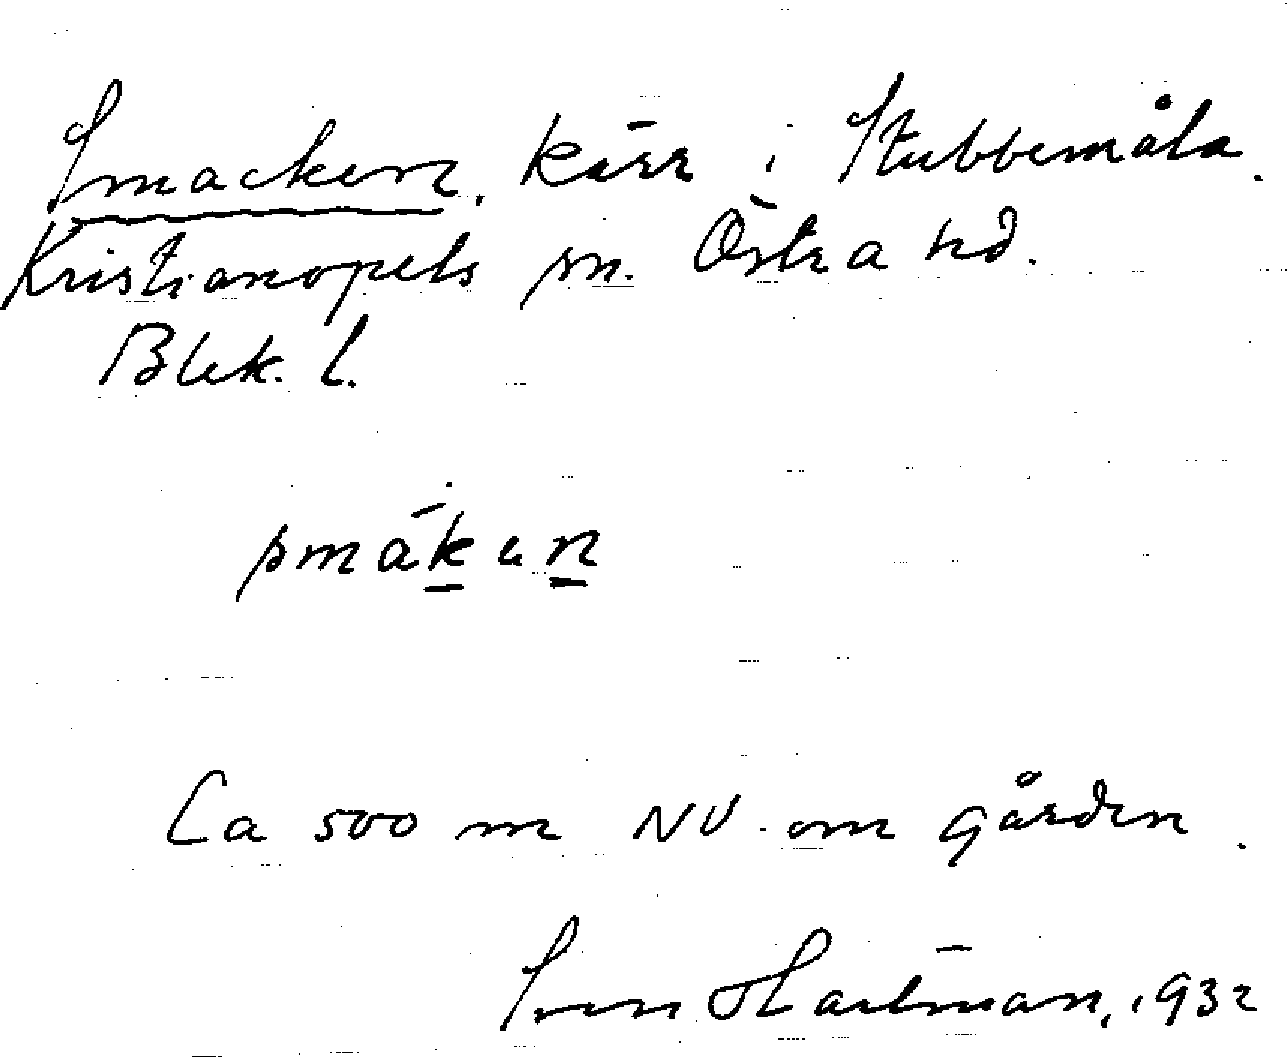 Smacken, kärr i Stubbemåla.
Kristianopels sn. Östra hd.
Blek. l.
smákɘn
Ca 500 m NV om gården.
Sven Hartman, 1932